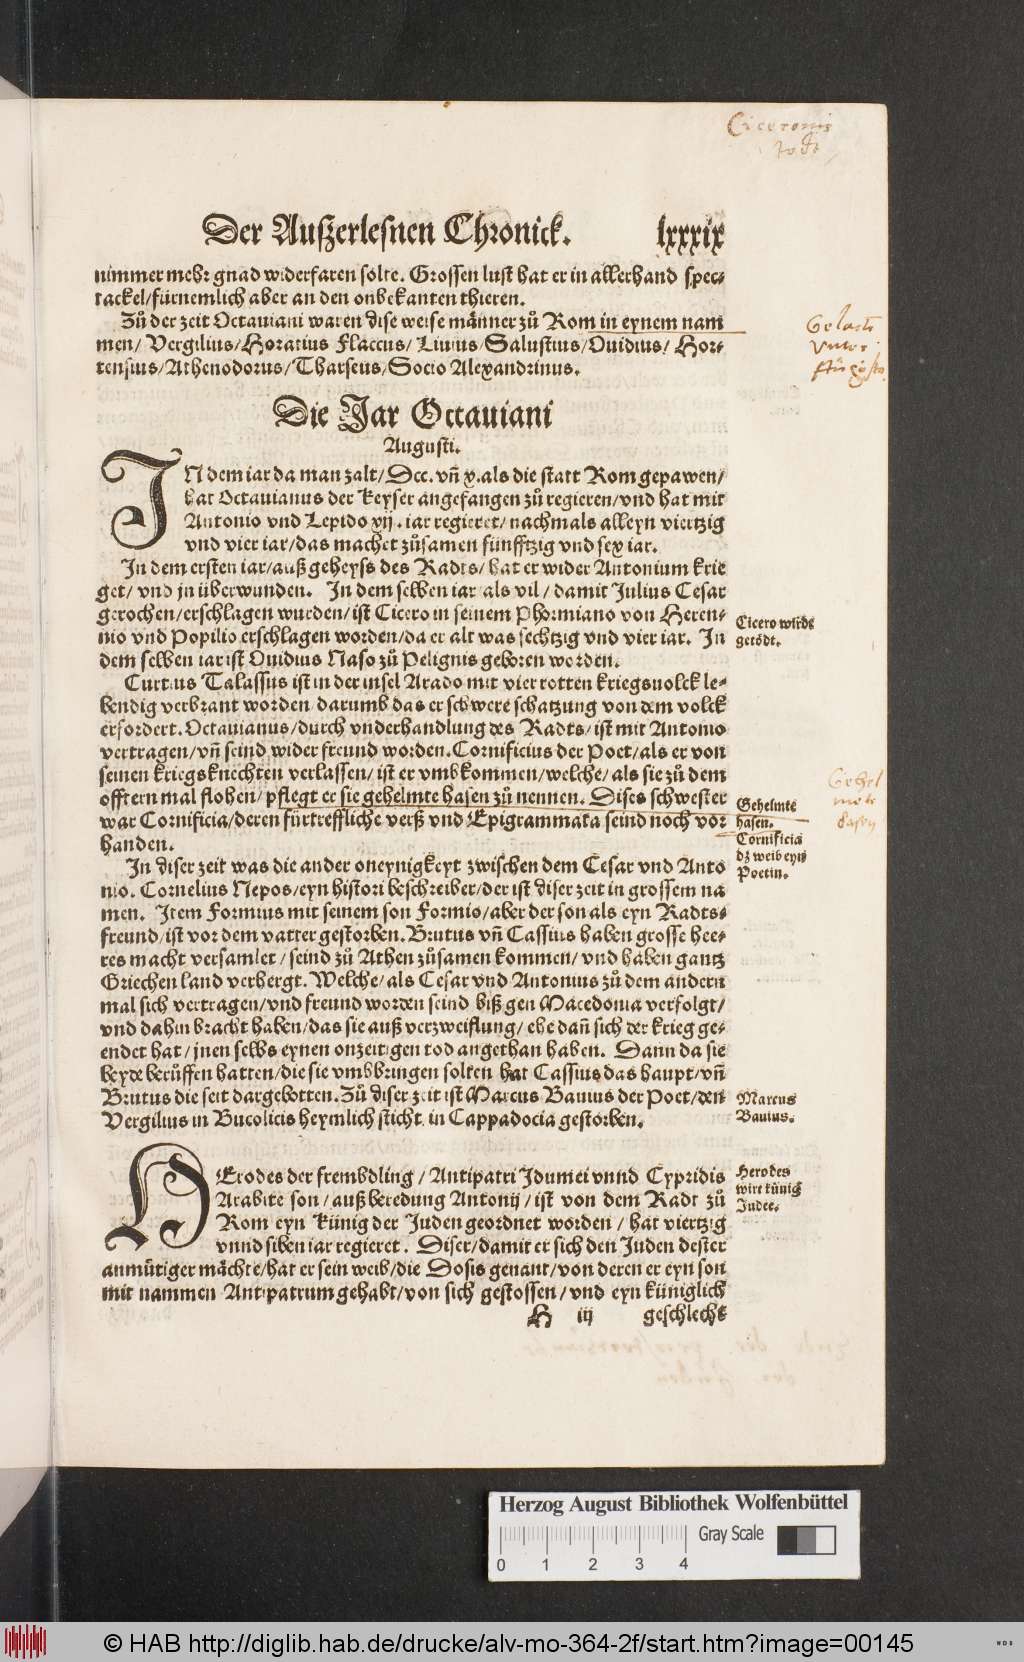 Ciceronis
todt
Der Außerlesnen Chronick. lxxxix
nimmer mehr gnad widerfaren solte. Grossen lust hat er in allerhand spec-
tackel/fürnemlich aber an den onbekanten thieren.
Zů der zeit Octauiani waren dise weise männer zů Rom in eynem nam
men/ Vergilius/Horatius Flaccus/ Liuius/Salustius/Ouidius/ Hor-
tensius/Athenodorus/Tharseus/Socio Alexandrinus.
Gelarti
Vnter
Augusto.
Die Jar Octauiani
Augusti.
IN dem iar da man zalt/Dcc. vñ x.als die statt Rom gepawen/
hat Octauianus der Keyser angefangen zů regieren/vnd hat mit
Antonio vnd Lepido xij. iar regieret/nachmals alleyn viertzig
vnd vier iar/das machet zůsamen fünfftzig vnd sex iar.
In dem ersten iar/auß geheyß des Radts/hat er wider Antonium krie
get/ vnd jn überwunden. In dem selben iar als vil/ damit Julius Cesar
gerochen/erschlagen wurden/ist Cicero in seinem Phormiano von Heren-
nio vnd Popilio erschlagen worden/da er alt was sechtzig vnd vier iar. In
dem selben iar ist Ouidius Naso zů Pelignis geboren worden.
Cicero wirdt
getödt.
Curtius Talassus ist in der insel Arado mit vier rotten kriegsuolck le-
bendig verbrant worden darumb das er schwere schatzung von dem volck
erfordert. Octauianus/durch vnderhandlung des Radts/ist mit Antonio
vertragen/vñ seind wider freund worden. Cornificius der Poet/als er von
seinen kriegsknechten verlassen/ist er vmbkommen/welche/als sie zů dem
offtern mal flohen/pflegt er sie gehelmte hasen zů nennen. Dises schwester
war Cornificia/deren fürtreffliche verß vnd Epigrammata seind noch vor
handen.
Gehelmte
hasen.
Cornificia
dz weib eyn
Poetin.
In diser zeit was die ander oneynigkeyt zwischen dem Cesar vnd Anto
nio. Cornelius Nepos/eyn histori beschreiber/der ist diser zeit in grossem na
men. Item Formius mit seinem son Formio/aber der son als eyn Radts-
freund/ist vor dem vatter gestorben. Brutus vñ Cassius haben grosse hee-
res macht versamlet/seind zů Athen zůsamen kommen/vnd haben gantz
Griechen land verhergt. Welche/als Cesar vnd Antonius zů dem andern
mal sich vertragen/vnd freund worden seind biß gen Macedonia verfolgt/
vnd dahin bracht haben/das sie auß verzweiflung/ehe dañ sich der krieg ge-
endet hat/jnen selbs eynen onzeitigen tod angethan haben. Dann da sie
beyde berůffen hatten/die sie vmbbringen solten hat Cassius das haupt/vñ
Brutus die seit dargebotten. Zů diser zeit ist Marcus Bauius der Poet/den
Vergilius in Bucolicis heymlich sticht in Cappadocia gestorben.
Marcus
Bauius.
HErodes der frembdling/Antipatri Idumei vnnd Cypridis
Arabite son/auß beredung Antonij/ist von dem Radt zů
Rom eyn Künig der Juden geordnet worden/ hat viertzig
vnnd siben iar regieret. Diser/damit er sich den Juden dester
anmütiger mächte/hat er sein weib/die Dosis genant/von deren er eyn son
mit nammen Antipatrum gehabt/von sich gestossen/vnd eyn küniglich
Herodes
wirt künig
Judee.
H iij geschlecht
Herzog August Bibliothek Wolfenbüttel
Gray Scale
0 1 2 3 4
© HAB http://diglib.hab.de/drucke/alv-mo-364-2f/start.htm?image=00145